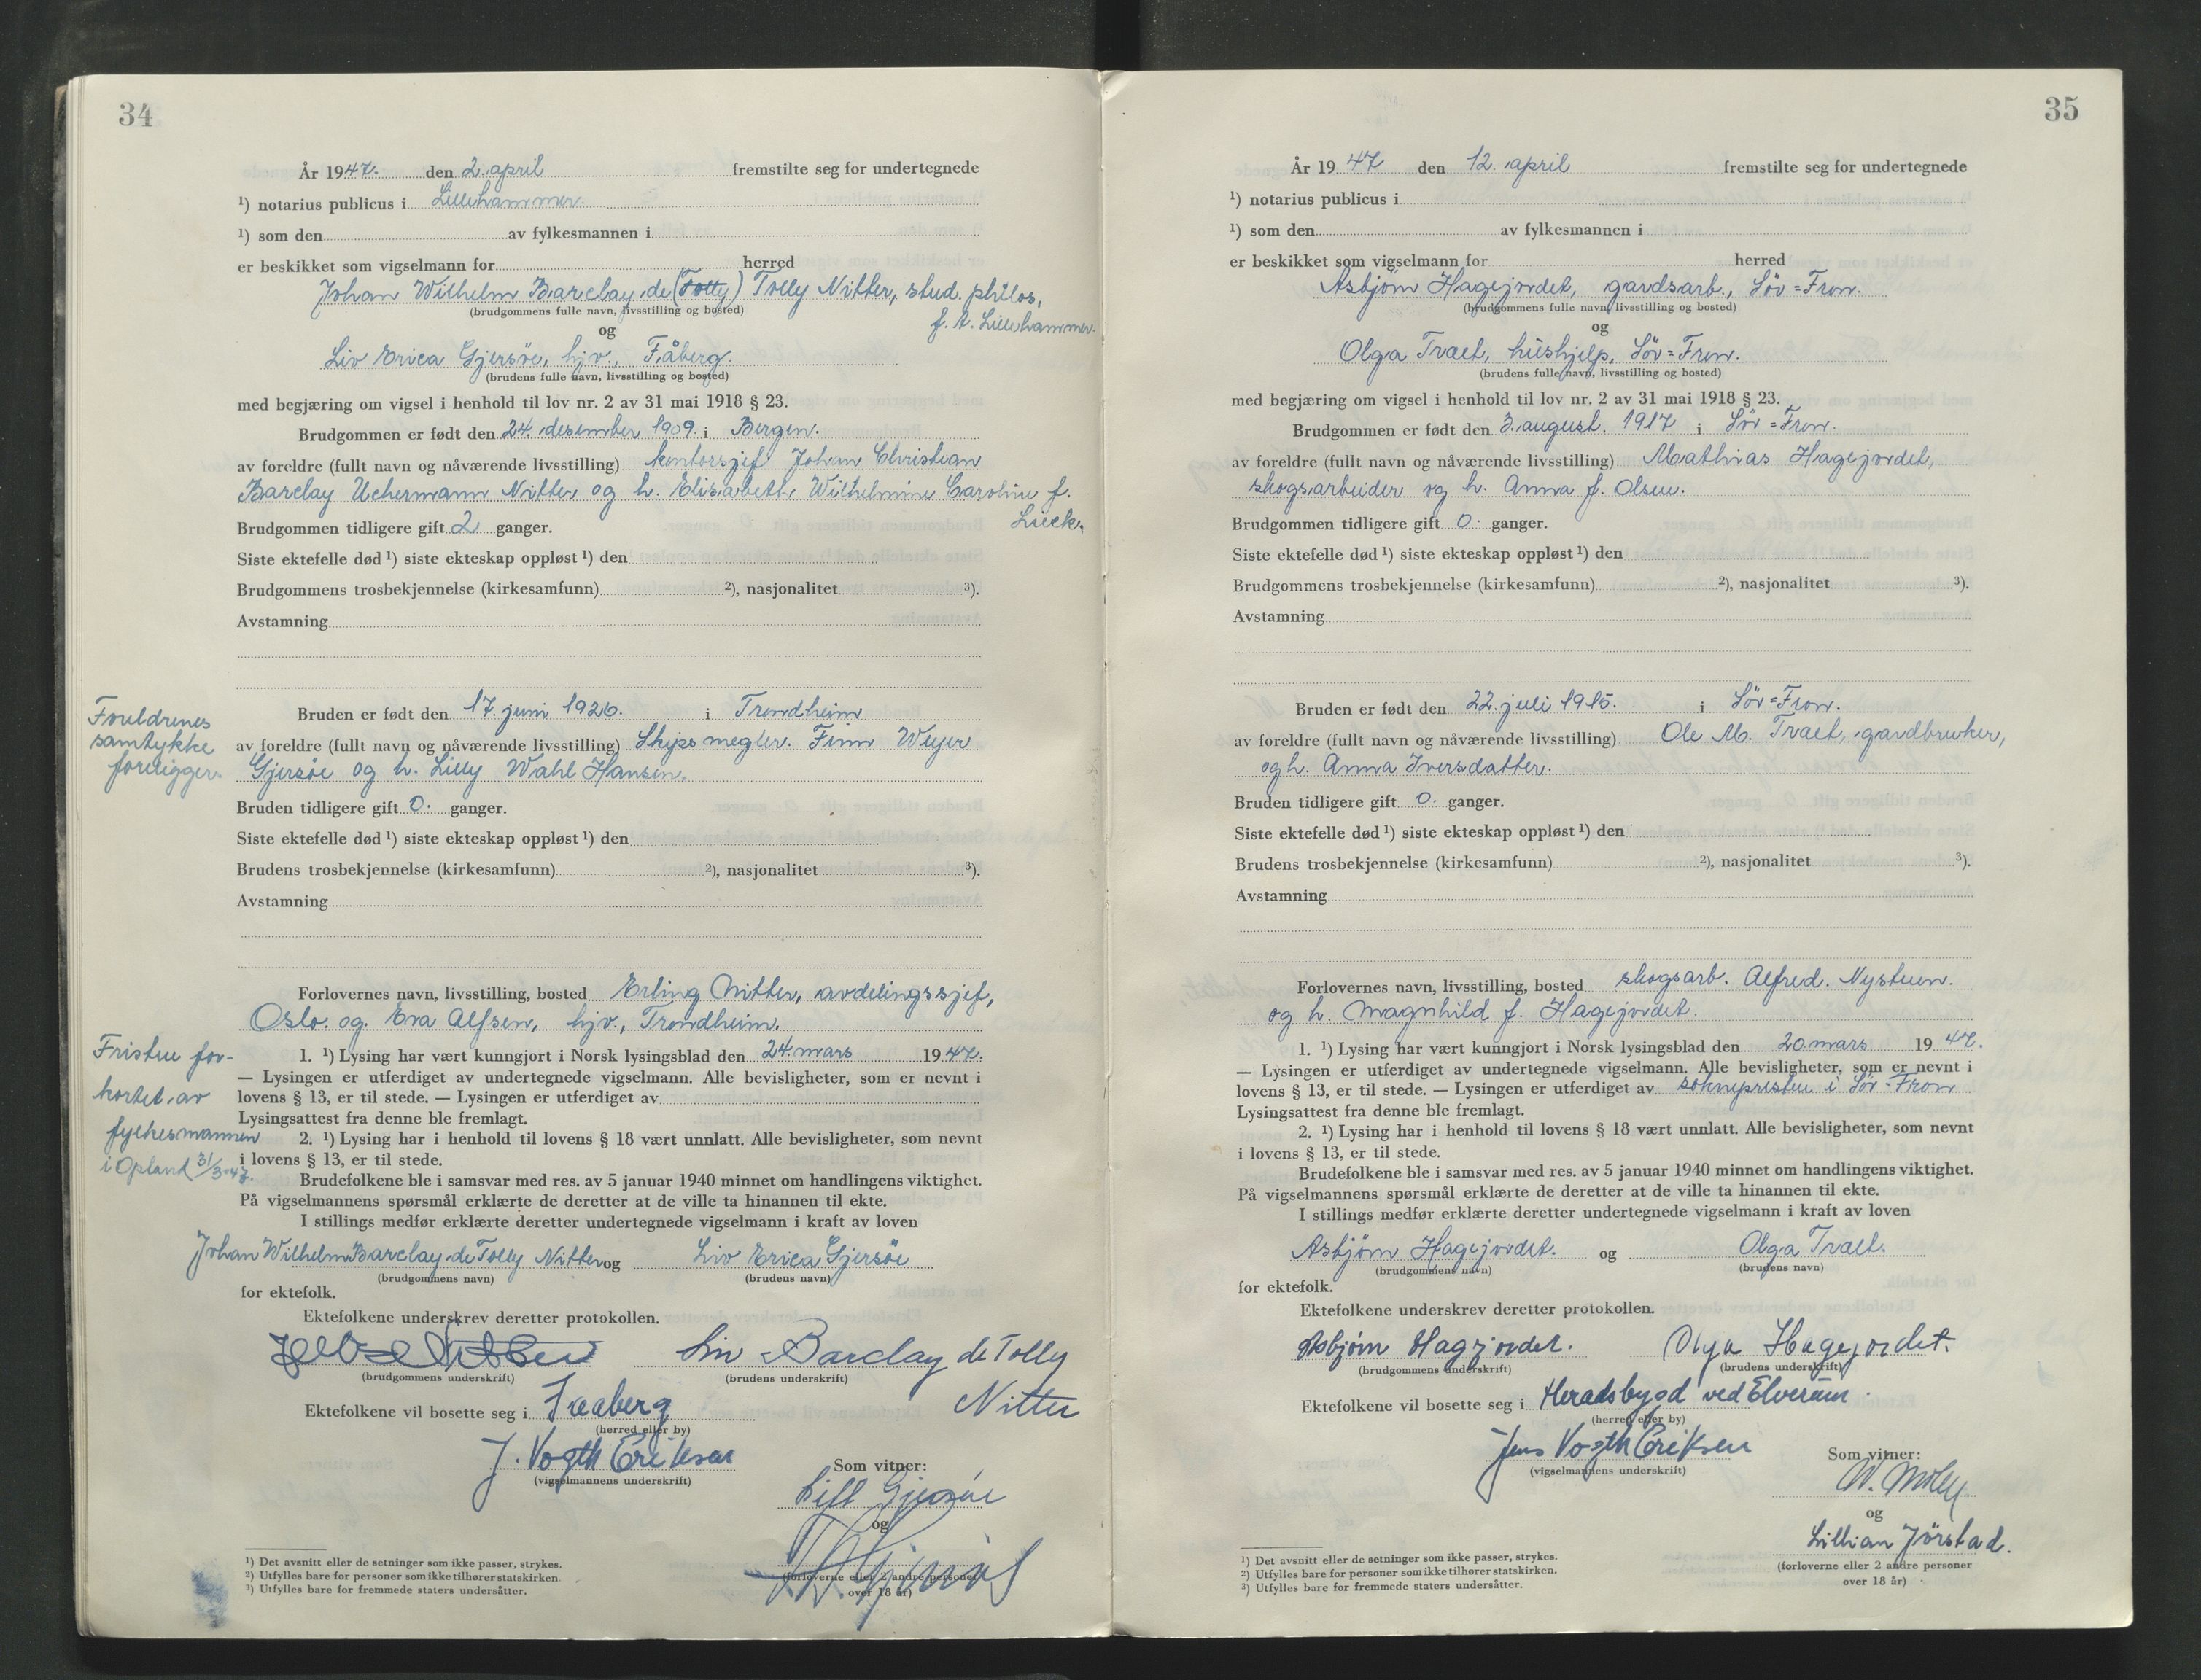 34
År 1947. den 2. april fremstilte seg for undertegnede
¹) notarius publicus i Lillehammer.
¹) som den av fylkesmannen i
er beskikket som vigselmann for herred
Johan Wilhelm Barclay de (Tolly) Tolly Nitter, stud. philos,
(brudgommens fulle navn, livsstilling og bosted)
f. t. Lillehammer.
og
Liv Erica Gjersöe, hjv., Fåberg.
(brudens fulle navn, livsstilling og bosted)
med begjæring om vigsel i henhold til lov nr. 2 av 31 mai 1918 § 23.
Brudgommen er født den 24. desember 1909. i Bergen.
av foreldre (fullt navn og nåværende livsstilling) kontorsjef Johan Christian
Barclay Uchermann Nitter og h. Elisabeth Wilhelmine Caroline f.
Lück.
Brudgommen tidligere gift 2 ganger.
Siste ektefelle død ¹) siste ekteskap oppløst ¹) den
Brudgommens trosbekjennelse (kirkesamfunn) ²), nasjonalitet ³).
Avstamning
Foreldrenes
samtykke
foreligger.
Bruden er født den 17. juni 1926. i Trondheim
av foreldre (fullt navn og nåværende livsstilling) Skipsmegler. Finn Weyer
Gjersöe og h. Lilly Wahl Hansen.
Bruden tidligere gift 0. ganger.
Siste ektefelle død ¹) siste ekteskap oppløst ¹) den
Brudens trosbekjennelse (kirkesamfunn) ²), nasjonalitet ³).
Avstamning
Forlovernes navn, livsstilling, bosted Erling Nitter, avdelingssjef,
Oslo. og. Eva Alfsen, hjv., Trondheim.
Fristen for-
kortet av
fylkesmannen
i Opland 31/3-47.
1. ¹) Lysing har vært kunngjort i Norsk lysingsblad den 24. mars 1947.
— Lysingen er utferdiget av undertegnede vigselmann. Alle bevisligheter, som er nevnt i
lovens § 13, er til stede. — Lysingen er utferdiget av
Lysingsattest fra denne ble fremlagt.
2. ¹) Lysing har i henhold til lovens § 18 vært unnlatt. Alle bevisligheter, som nevnt
i lovens § 13, er til stede.
Brudefolkene ble i samsvar med res. av 5 januar 1940 minnet om handlingens viktighet.
På vigselmannens spørsmål erklærte de deretter at de ville ta hinannen til ekte.
I stillings medfør erklærte deretter undertegnede vigselmann i kraft av loven
Johan Wilhelm Barclay de Tolly Nitter og Liv Erica Gjersöe
(brudgommens navn) (brudens navn)
for ektefolk.
Ektefolkene underskrev deretter protokollen.
Liv Barclay de Tolly
(brudgommens underskrift) (brudens underskrift)
Nitter
Ektefolkene vil bosette seg i Faaberg
(herred eller by)
J. Vogth Eriksen
(vigselmannens underskrift)
Som vitner:
Lill Gjersöe
og
(forloverne eller 2 andre personer
over 18 år)
¹) Det avsnitt eller de setninger som ikke passer, strykes.
²) Utfylles bare for personer som ikke tilhører statskirken.
³) Utfylles bare for fremmede staters undersåtter.
35
År 19 47 den 12. april fremstilte seg for undertegnede
¹) notarius publicus i
¹) som den av fylkesmannen i
er beskikket som vigselmann for herred
Asbjørn Hagejordet, gardsarb., Sör=Fron.
(brudgommens fulle navn, livsstilling og bosted)
og
Olga Traet, hushjelp, Sör=Fron.
(brudens fulle navn, livsstilling og bosted)
med begjæring om vigsel i henhold til lov nr. 2 av 31 mai 1918 § 23.
Brudgommen er født den 3. august. 1917 i Sör=Fron.
av foreldre (fullt navn og nåværende livsstilling) Mathias Hagejordet,
skogsarbeider og h. Anna f. Olsen.
Brudgommen tidligere gift 0. ganger.
Siste ektefelle død ¹) siste ekteskap oppløst ¹) den
Brudgommens trosbekjennelse (kirkesamfunn) ²), nasjonalitet ³).
Avstamning
Bruden er født den 22. juli 1915. i Sör=Fron.
av foreldre (fullt navn og nåværende livsstilling) Ole M. Traet, gardbruker,
og h. Anna Iversdatter.
Bruden tidligere gift 0. ganger.
Siste ektefelle død ¹) siste ekteskap oppløst ¹) den
Brudens trosbekjennelse (kirkesamfunn) ²), nasjonalitet ³).
Avstamning
Forlovernes navn, livsstilling, bosted skogsarb. Alfred. Nystuen.
og h. Magnhild f. Hagejordet.
1. ¹) Lysing har vært kunngjort i Norsk lysingsblad den 20. mars 19 47.
— Lysingen er utferdiget av undertegnede vigselmann. Alle bevisligheter, som er nevnt i
lovens § 13, er til stede. — Lysingen er utferdiget av soknepresten i Sör=Fron
Lysingsattest fra denne ble fremlagt.
2. ¹) Lysing har i henhold til lovens § 18 vært unnlatt. Alle bevisligheter, som nevnt
i lovens § 13, er til stede.
Brudefolkene ble i samsvar med res. av 5 januar 1940 minnet om handlingens viktighet.
På vigselmannens spørsmål erklærte de deretter at de ville ta hinannen til ekte.
I stillings medfør erklærte deretter undertegnede vigselmann i kraft av loven
Asbjørn Hagejordet. og Olga Traet.
(brudgommens navn) (brudens navn)
for ektefolk.
Ektefolkene underskrev deretter protokollen.
Asbjørn Hagejordet. Olga Hagejordet.
(brudgommens underskrift) (brudens underskrift)
Ektefolkene vil bosette seg i Heradsbygd ved Elverum.
(herred eller by)
Jens Vogth Eriksen
(vigselmannens underskrift)
Som vitner:
og
Lillian Jörstad.
(forloverne eller 2 andre personer
over 18 år)
¹) Det avsnitt eller de setninger som ikke passer, strykes.
²) Utfylles bare for personer som ikke tilhører statskirken.
³) Utfylles bare for fremmede staters undersåtter.